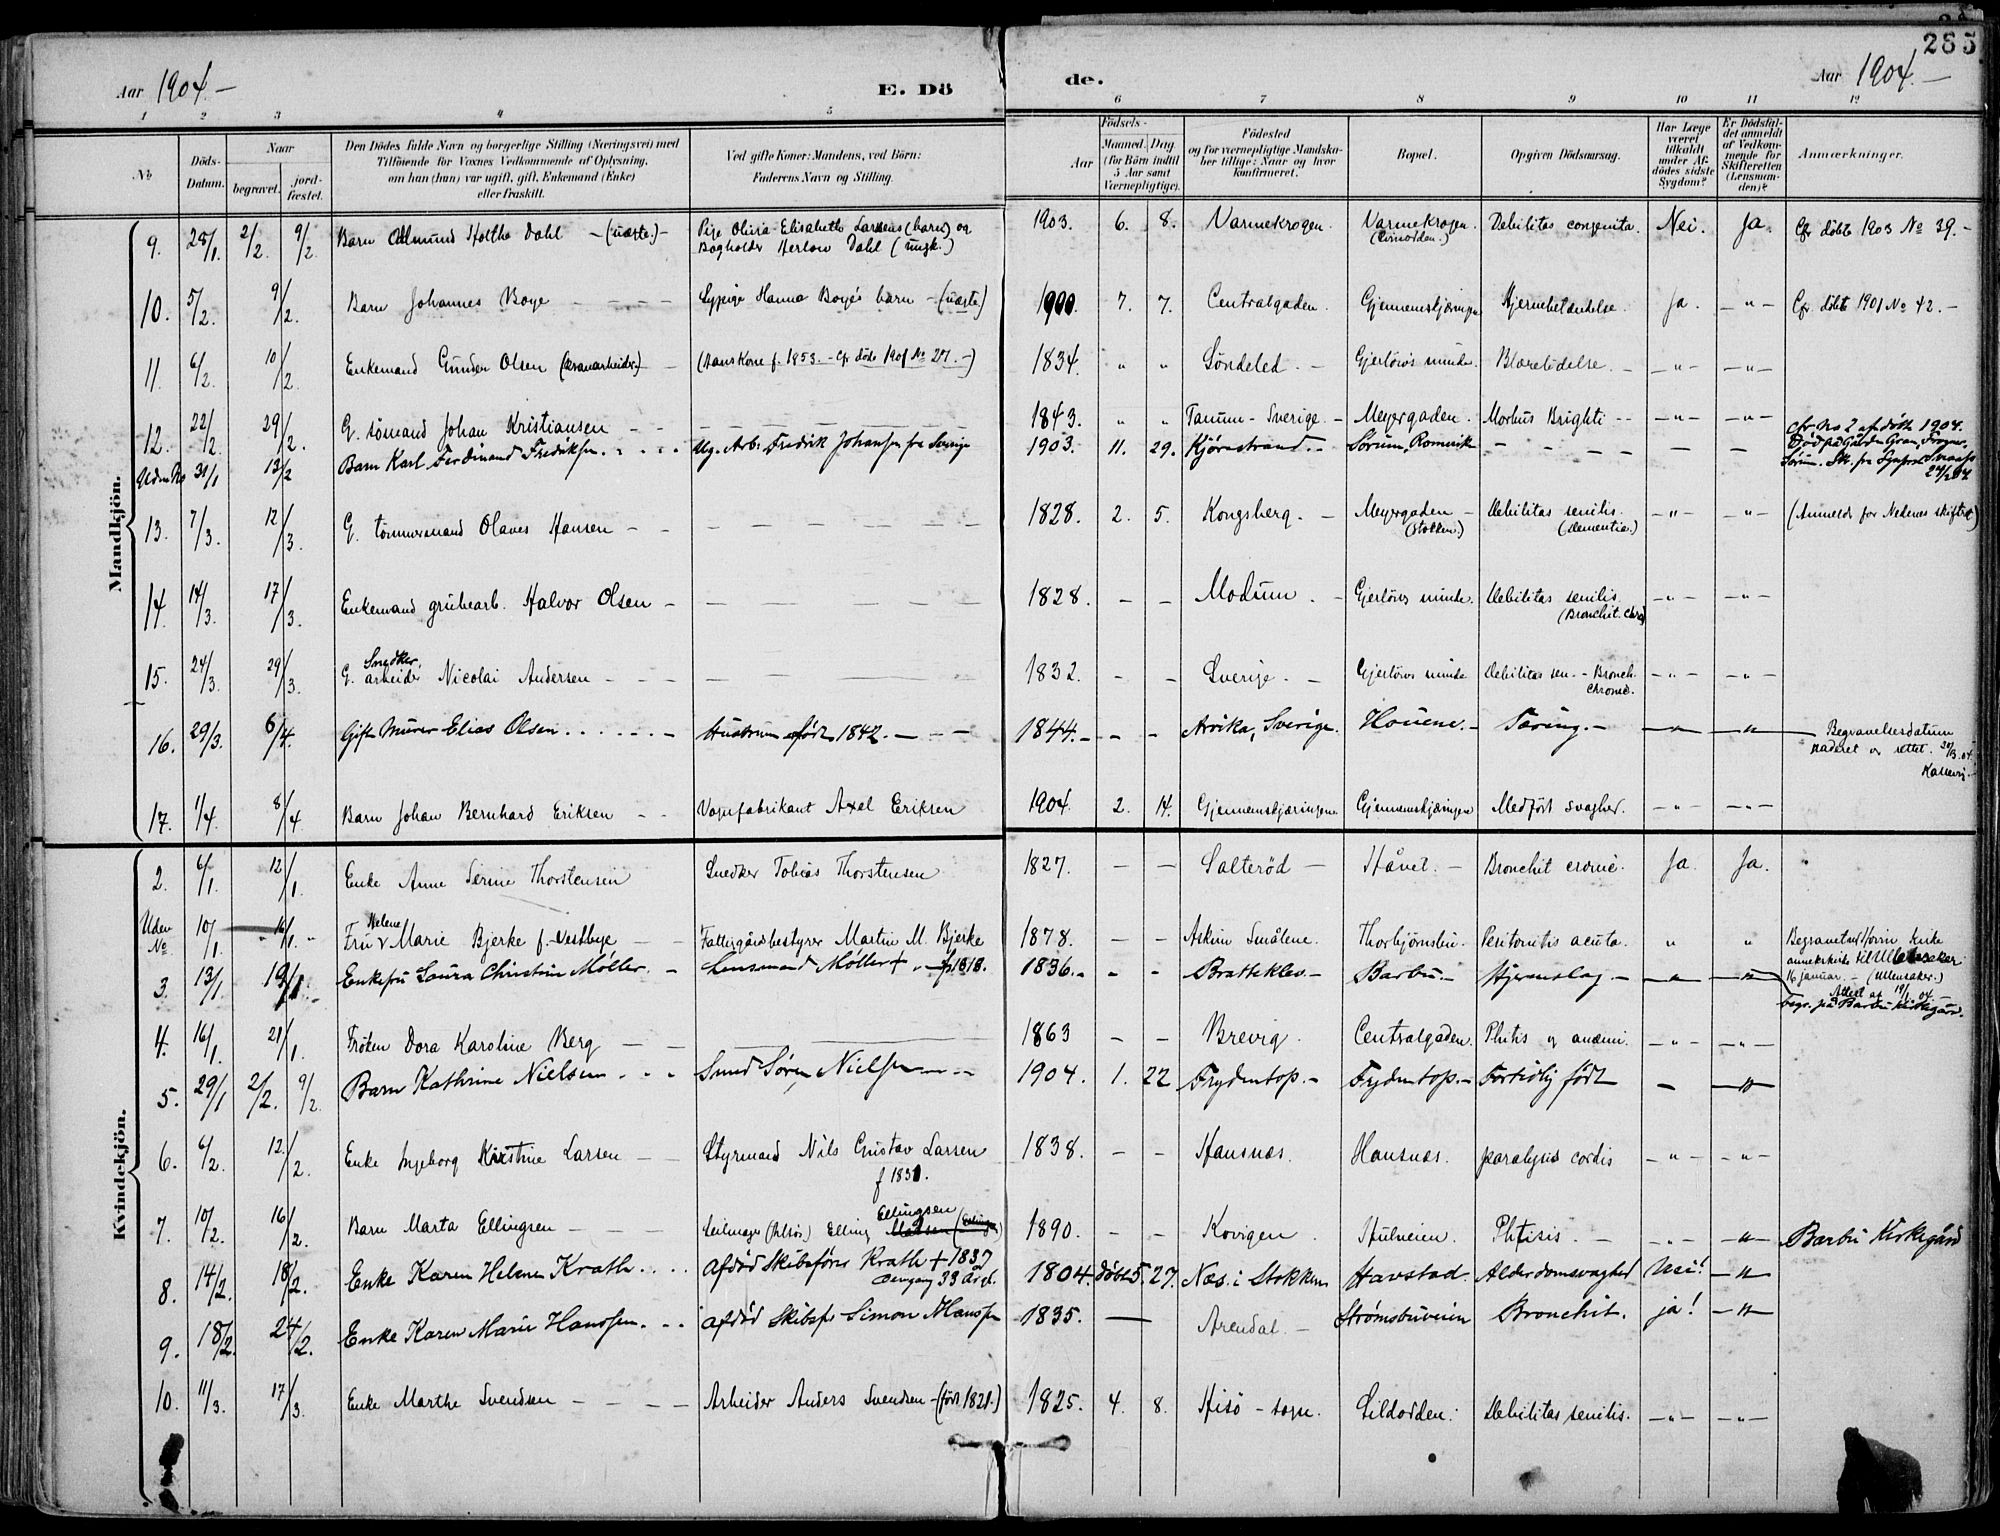 285
Aar 1904.—
E. Dö
de.
Aar 1904.—
1 2 3 4 5 6 7 8 9 10 11 12
No
Döds-Datum.
Naar
begravet.
jord-fæstet.
Den Dödes fulde Navn og borgerlige Stilling (Næringsvei) med
Tilföiende for Voxnes Vedkommende af Oplysning,
om han (hun) var ugift, gift, Enkemand (Enke)
eller fraskilt.
Ved gifte Koner: Mandens, ved Börn:
Faderens Navn og Stilling.
Födsels-
Aar
Maaned. Dag
(for Börn indtil
5 Aar samt
Værnepligtige).
Födested
og for værnepligtige Mandska-
ber tillige: Naar og hvor
konfirmeret.
Bopæl.
Opgiven Dödsaarsag.
Har Læge
været
tilkaldt
under Af-
dödes sidste
Sygdom?
Er Dödsfal-
det anmeldt
af Vedkom-
mende for
Skifteretten
(Lensman-
den)?
Anmærkninger.
Mandkjön.
9. 28/1. 2/2. 9/2. Barn Almund Holthe Dahl — (uægte.) — Pige Olivia Elisabeth Larsens (barn) og
Bogholder Herlow Dahl (ungk.) 1903. 6. 8. Varmekrogen. Varmekrogen. Debilitas congenita. Nei. Ja. Cfr døbte 1903 No 39. —
10. 5/2. 9/2. Barn Johannes Boye — — — Sypige Hanna Boye's barn — (uægte) 1900. 7. 7. Centralgaden. Gjennemskjæringen Hjernebetændelse. Ja. — " — Cfr. døbte 1901 No 42. —
11. 6/2. 10/2. Enkemand Gunder Olsen — (Hans Kone f. 1853. — Cfr døde 1901 No 27. —) 1834. " " Søndeled. — Gjerløvs minde. Blærelidelse. — — " — — " —
12. 22/2. 29/2. G. sømand Johan Kristiansen — — 1843. " " Tanum — Sverige — Meyergaden. Morbus Brighti — — — " — — " —
Uden No 31/1 13/2 Barn Karl Ferdinand Fredriksen. Ug. Arb. Fredrik Johansen fra Sverige 1903. 11. 29. Kjørrestrand. — Sørum, Romerike — — — cfr No 2 af døbte 1904.
Død på Gården Gran, Frogner
Sørum.
13. 7/3. 12/3. G. tømmermand Olaves Hansen — — 1828. 2. 5. Kongsberg. — Meyergaden — (Stokken.) Debilitas senilis. (dementia.) — " — — " — (Anmeldt for Nedenes skifteret)
14. 14/3. 17/3. Enkemand grubearb. Halvor Olsen — 1828. — — Modum. — Gjerløvs minde. Debilitas senilis. (Bronchit. chro) — " — — " —
15. 24/3. 29/3. G. Snedker arbeider Nicolai Andersen — — — 1832. — — Sverige. — Gjerløvs minde Debilitas sen. — Bronch. chronic. — " — — " —
16. 29/3. 6/4. Gift Murer Elias Olsen. . . . . . — Hustrum født 1842. — — — 1844. — — — Arvika, Sverige. Houene. — Tæring. — — " — — " — Begravelsesdatum
raderet og rettet. 30/3.04.
17. 1/4. 8/4 Barn Johan Bernhard Eriksen — — Vognfabrikant Axel Eriksen 1904. 2. 14. Gjennemskjæringen Gjennemskjæringen Medført svaghed. — " — — " —
Kvindekjön.
2. 6/1. 12/1. Enke Anne Serine Thorstensen Snedker Tobias Thorstensen 1827. — — Salterød — Håvet. — Bronchit cronic. Ja. Ja.
Uden No. 10/1. 16/1. Fru Helene Marie Bjerke f. Vestbye — — Fattiggårdsbestyrer Martin M. Bjerke 1878. — — Askim Smålene. Thorbjørnsbu. Peritonitis acuta. " " Begravet ved Hovin kirke
annekskirke til Ullensaker
16 januar. — (Ullensaker.)
Attest af 19/1. 04. —
3. 13/1. 19/1. Enkefru Laura Christine Møller. — Lensmand Møller + f. 1818. 1836. — — — Bratteklev. — Barbu. — Hjerneslag — — " — — " — begr. på Barbu kirkegård.
4. 16/1. 21/1. Frøken Dora Karoline Berg — — 1863 — — Brevig. Centralgaden. Phtis og anæmi. — " — — " —
5. 29/1 2/2. 9/2. Barn Kathrine Nielsen . . . Smed Søren Nielsen — — 1904. 1. 22 Frydentop. — Frydentop. — Fortidlig født — — " —
6. 6/2. 12/2. Enke Ingeborg Kirstine Larsen — — Styrmand Nils Gustav Larsen
f 1831. 1838. — — Hansnæs. Hansnæs. paralysis cordis — " — — " —
7. 10/2. 16/2. Barn Marta Ellingsen — — — Seilmager Elling Ellingsen 1890. — — Kovigen. Hulveien. Phtisis. — — " — — " — Barbu Kirkegård
8. 14/2. 18/2. Enke Karen Helene Krath. . . . Afdød Skibsfører Krath + 1837
dengang 33 år gl. 1804. døbt 5. 27. Næs. i Stokken Havstad. — Alderdomsvaghed Nei! — " —
9. 18/2. 24/2. Enke Karen Marie Hanssen. . . afdød Skibsf. Simon Hanssen 1835. — Arendal. — Strømsbuveien Bronchit. ja! — " —
10. 11/3. 17/3. Enke Marthe Svendsen — — — — Arbeider Anders Svendsen — (født 1821.) 1825. 4. 8. Hisö — sogn. Sildodden. Debilitas senilis. — " — — " —